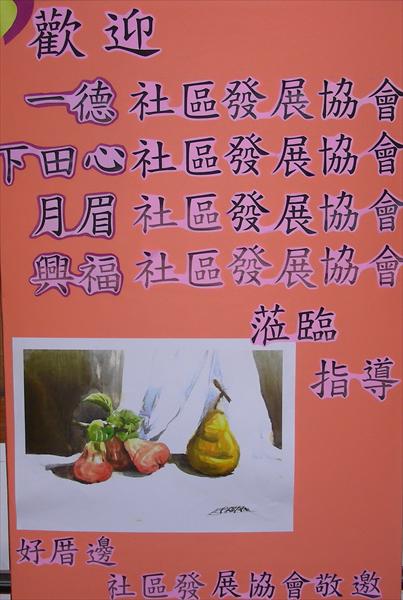 歡迎
一德社區發展協會
下田心社區發展協會
月眉社區發展協會
興福社區發展協會
蒞臨
指導
好厝邊
社區發展協會敬邀